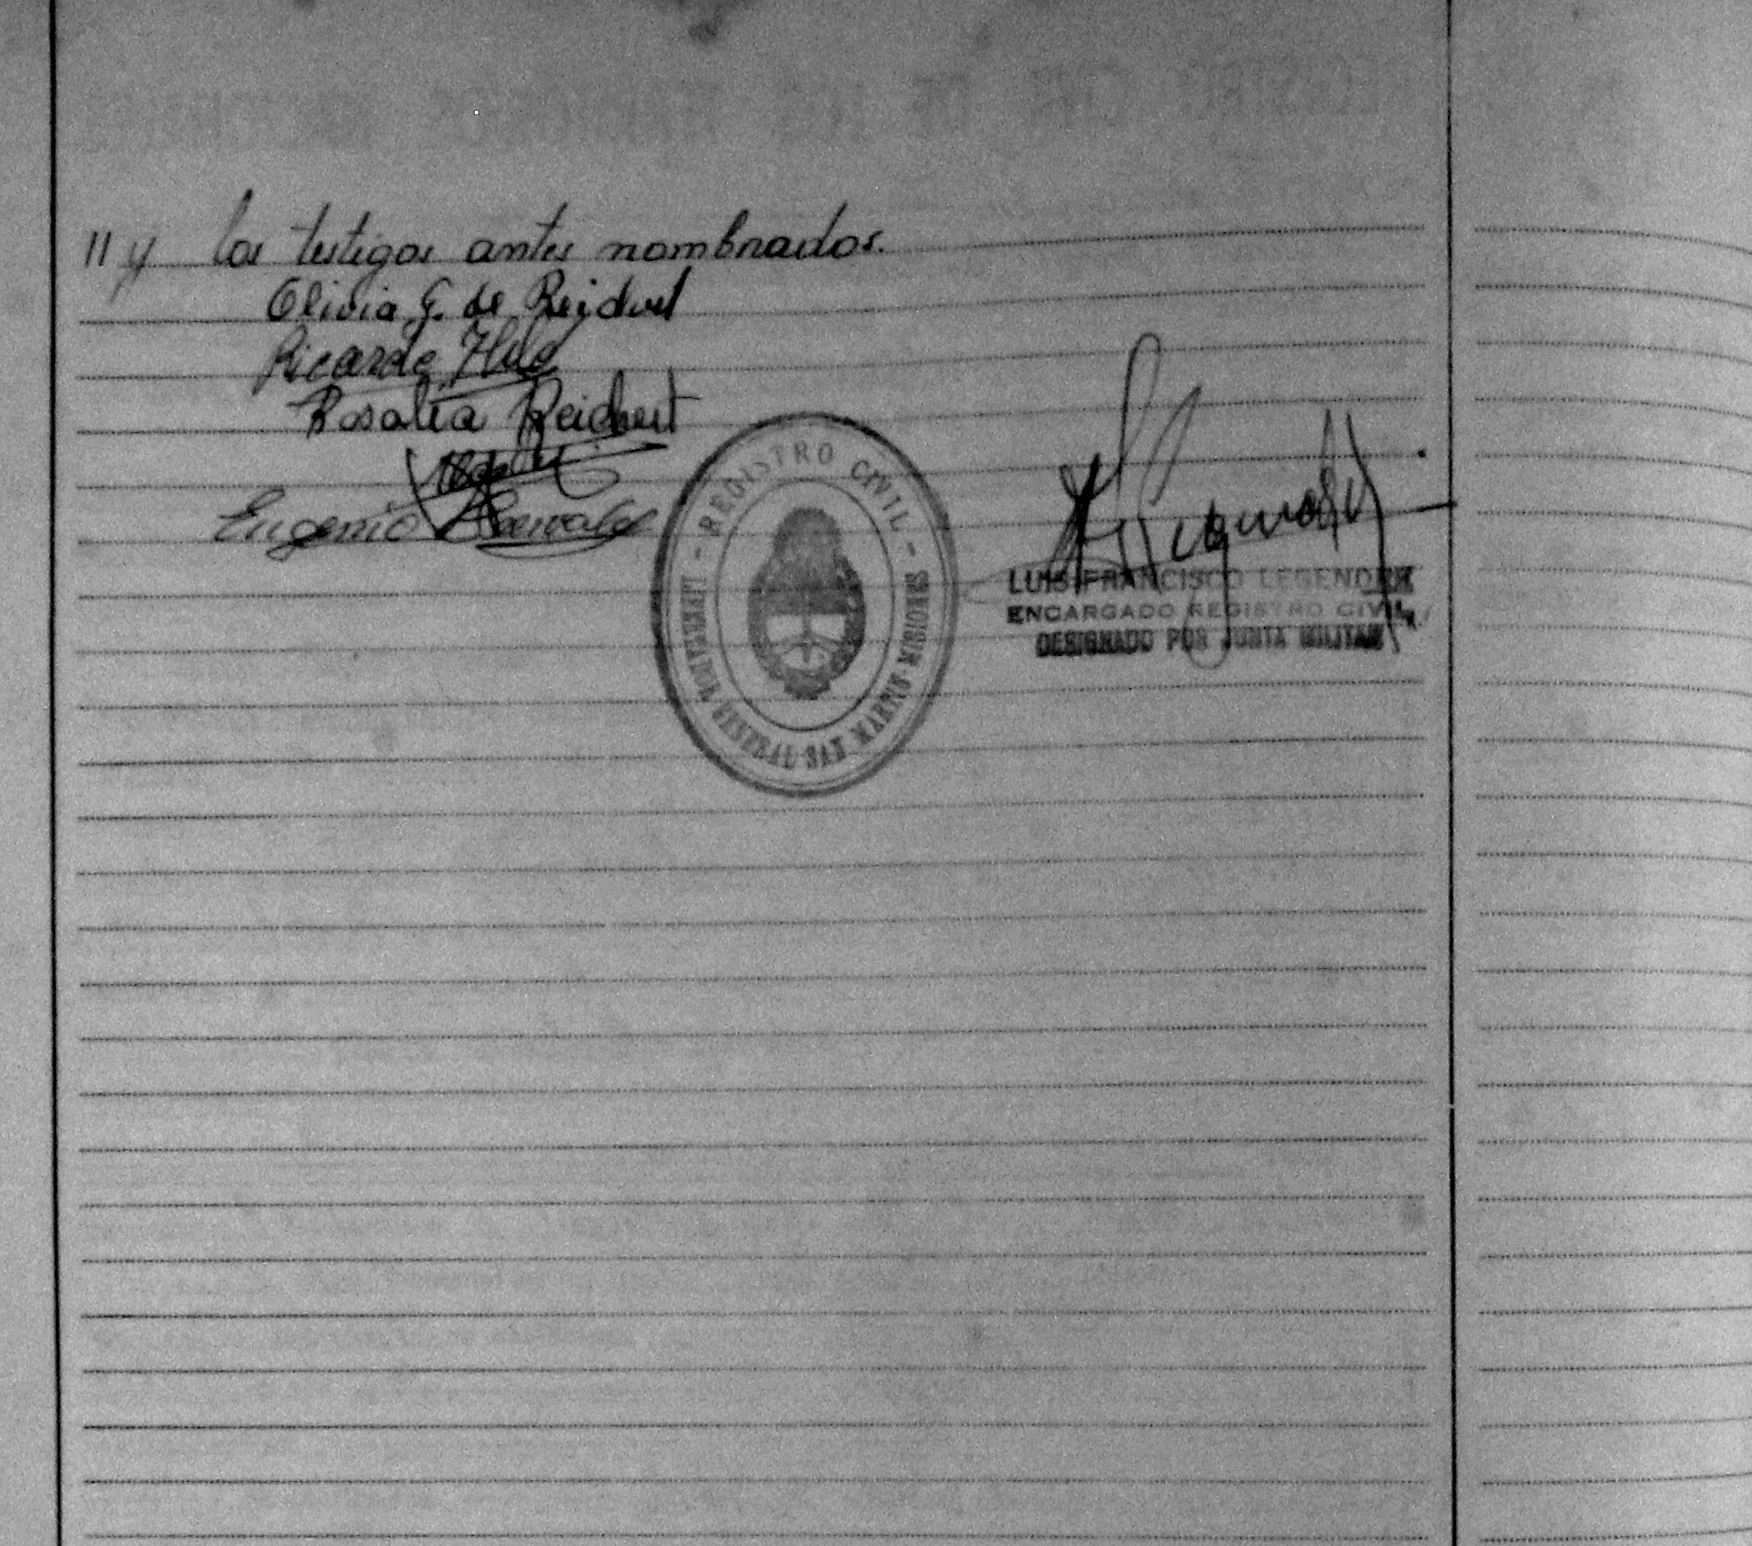 // y los testigos antes nombrados.
Olivia G. de Reidvel
Ricardo
Rosalia Reichert
Eugenio
REGISTRO CIVIL
LIBERTADOR GENERAL SAN MARTIN MISIONES
LUIS FRANCISCO LEGENDRE
ENCARGADO REGISTRO CIVIL
DESIGNADO POR JUNTA MILITAR